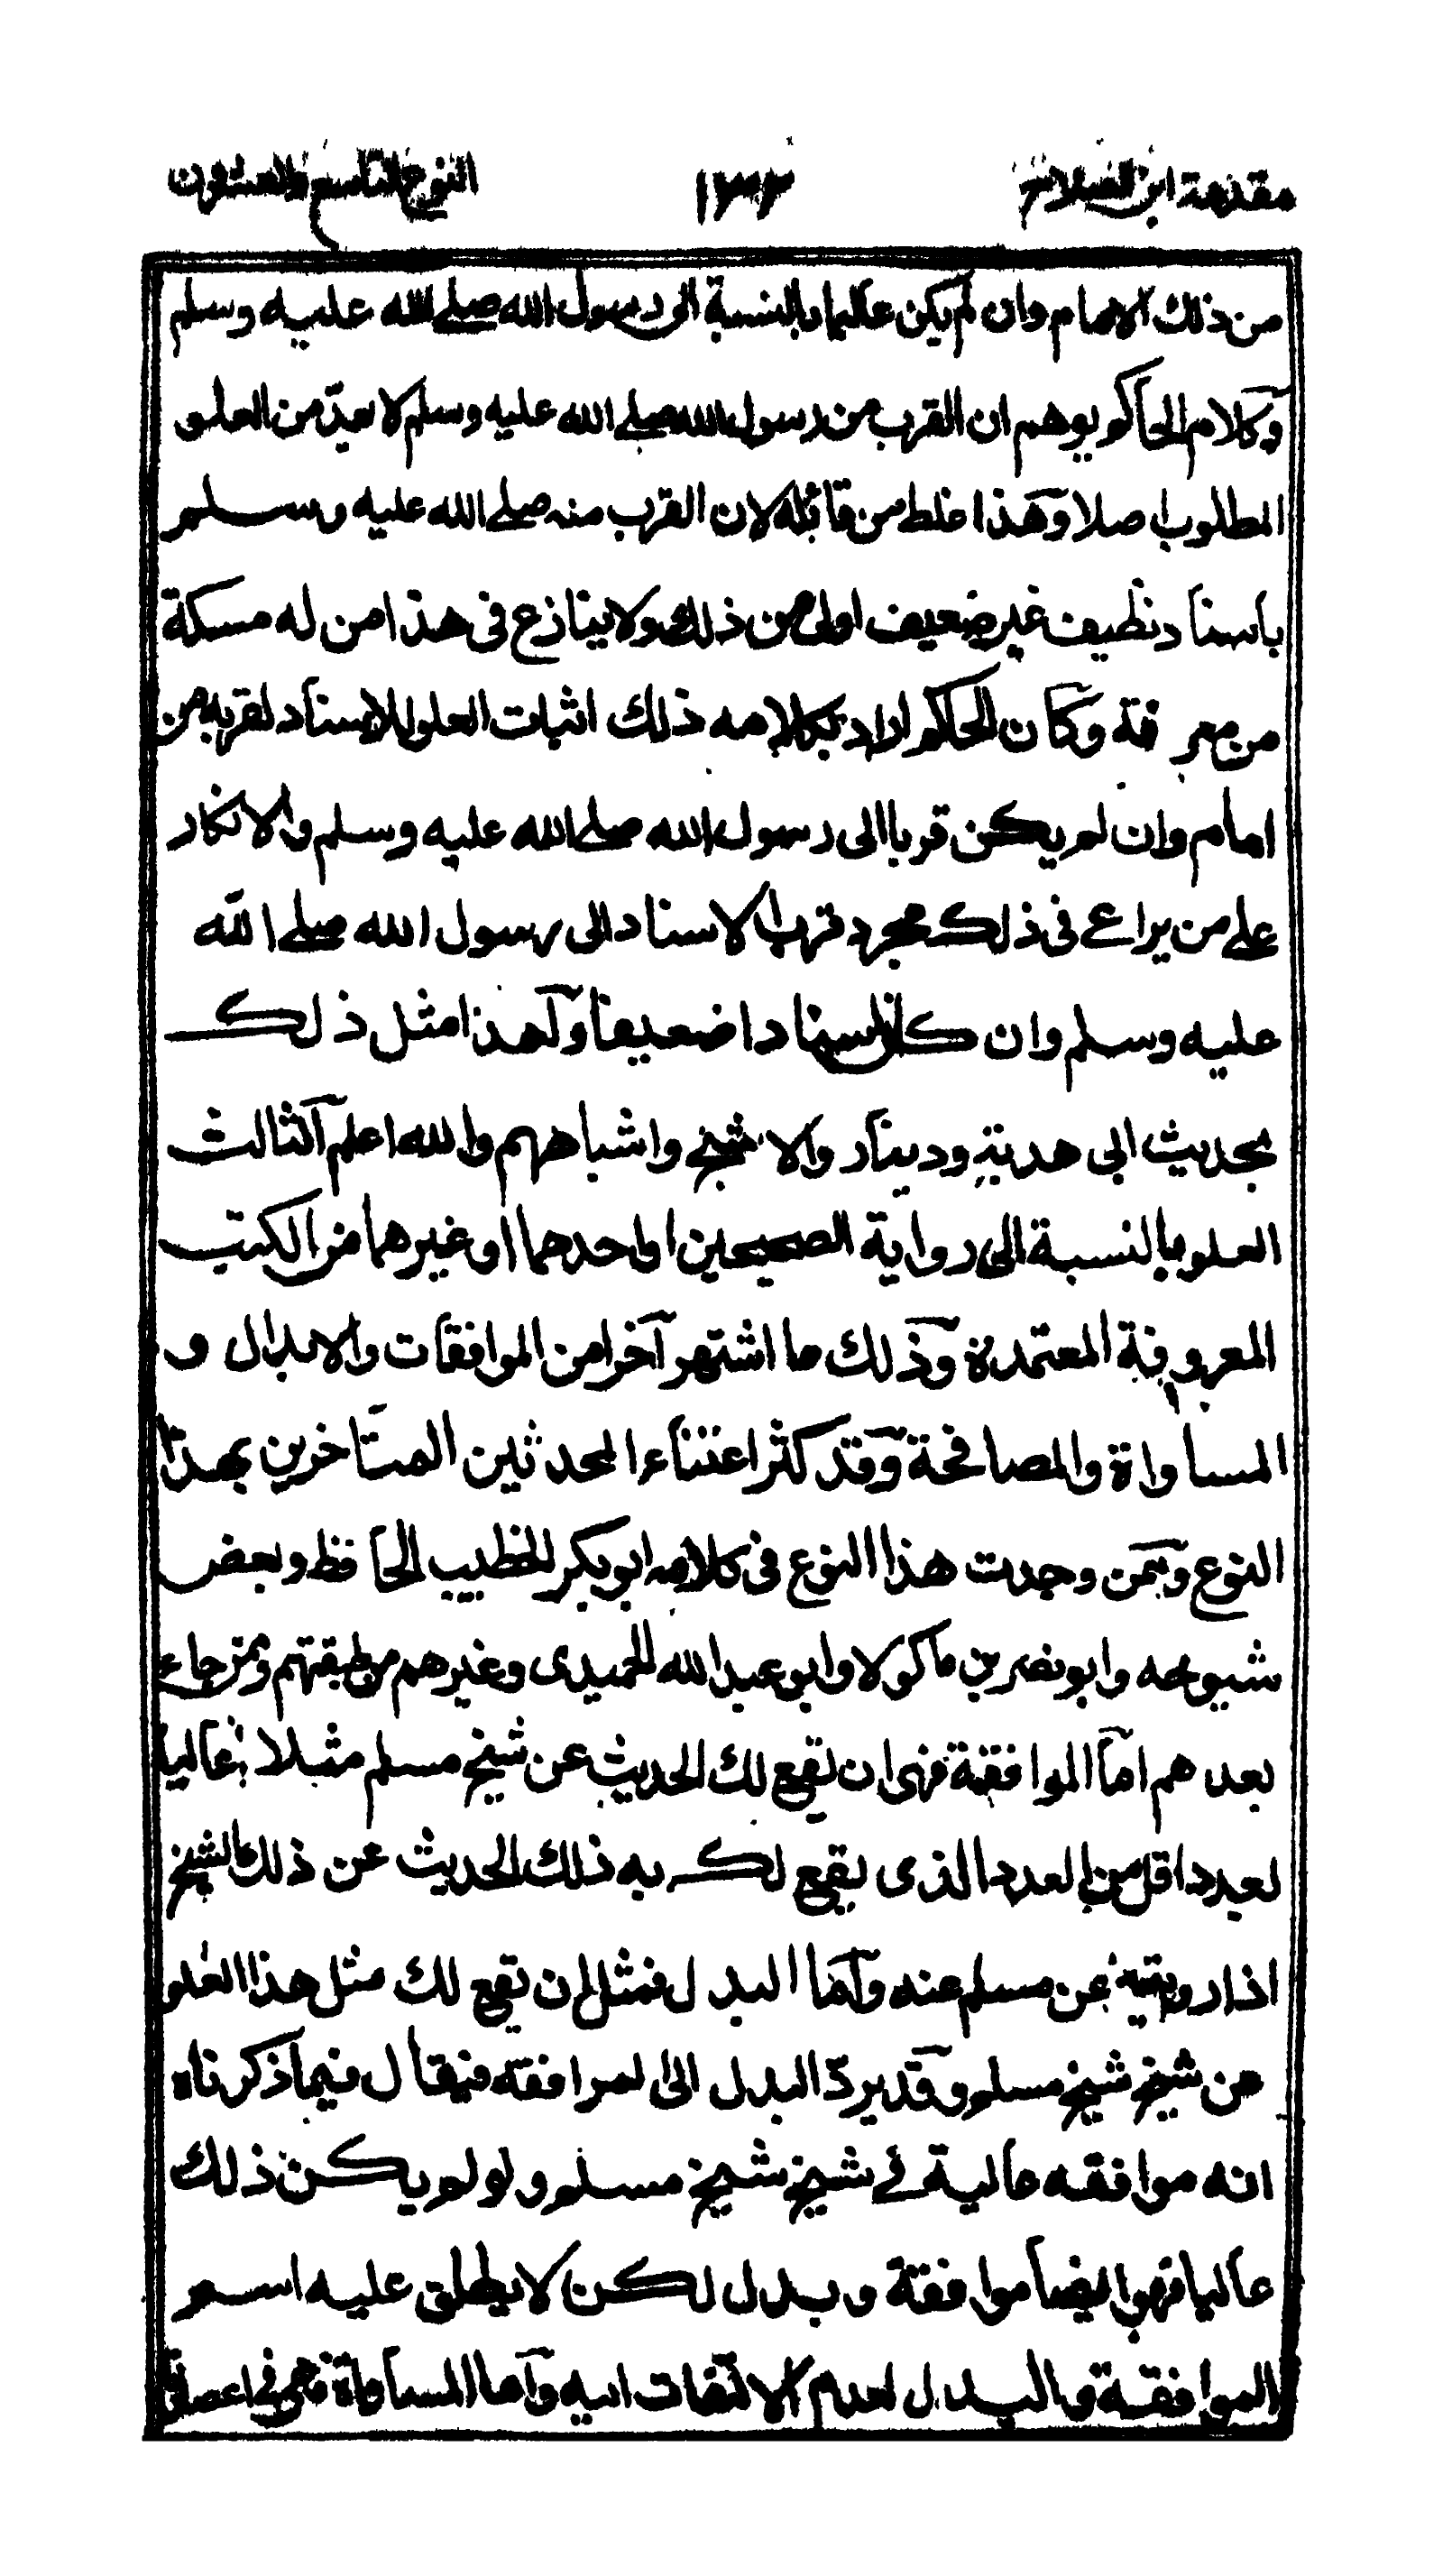 مقدمة ابن الصلاح ١٣٣ النوع التاسع والعشرون
من ذلك الامام وان لم يكن عاليا بالنسبة الى رسول الله صلى الله عليه وسلم
وكلام الحاكم يوهم ان القرب من رسول الله صلى الله عليه وسلم لا يعد من العلو
المطلوب اصلا وهذا غلط من قائله لان القرب منه صلى الله عليه وسلم
باسناد نظيف غير ضعيف اولى من ذلك ولا ينازع في هذا من له مسكة
من معرفة وكان الحاكم اراد بكلامه ذلك اثبات العلو للاسناد لقربه من
امام وان لم يكن قربا الى رسول الله صلى الله عليه وسلم والانكار
على من يراعى في ذلك مجرد قرب الاسناد الى رسول الله صلى الله
عليه وسلم وان كان اسنادا ضعيفا ولهذا مثل ذلك
بحديث ابى هدبة ودينار والاشج واشباههم والله اعلم الثالث
العلو بالنسبة الى رواية الصحيحين او احدهما او غيرهما من الكتب
المعروفة المعتمدة وذلك ما اشتهر آخرا من الموافقات والابدال و
المساواة والمصافحة وقد كثر اعتناء المحدثين المتاخرين بهذا
النوع وممن وجدت هذا النوع في كلامه ابو بكر الخطيب الحافظ وبعض
شيوخه وابو نصر بن ماكولا وابو عبد الله الحميدى وغيرهم من طبقتهم وممن جاء
بعدهم اما الموافقة فهى ان يقع لك الحديث عن شيخ مسلم مثلا عاليا
بعدد اقل من العدد الذى يقع لك به ذلك الحديث عن ذلك الشيخ
اذا رويته عن مسلم عنه واما البدل فمثل ان يقع لك مثل هذا العلو
عن شيخ شيخ مسلم وقد يرد البدل الى الموافقة فيقال فيما ذكرناه
انه موافقة عالية في شيخ شيخ مسلم ولو لم يكن ذلك
عاليا فهو ايضا موافقة وبدل لكن لا يطلق عليه اسم
الموافقة والبدل لعدم الالتفات اليه واما المساواة فهى في اعصارنا